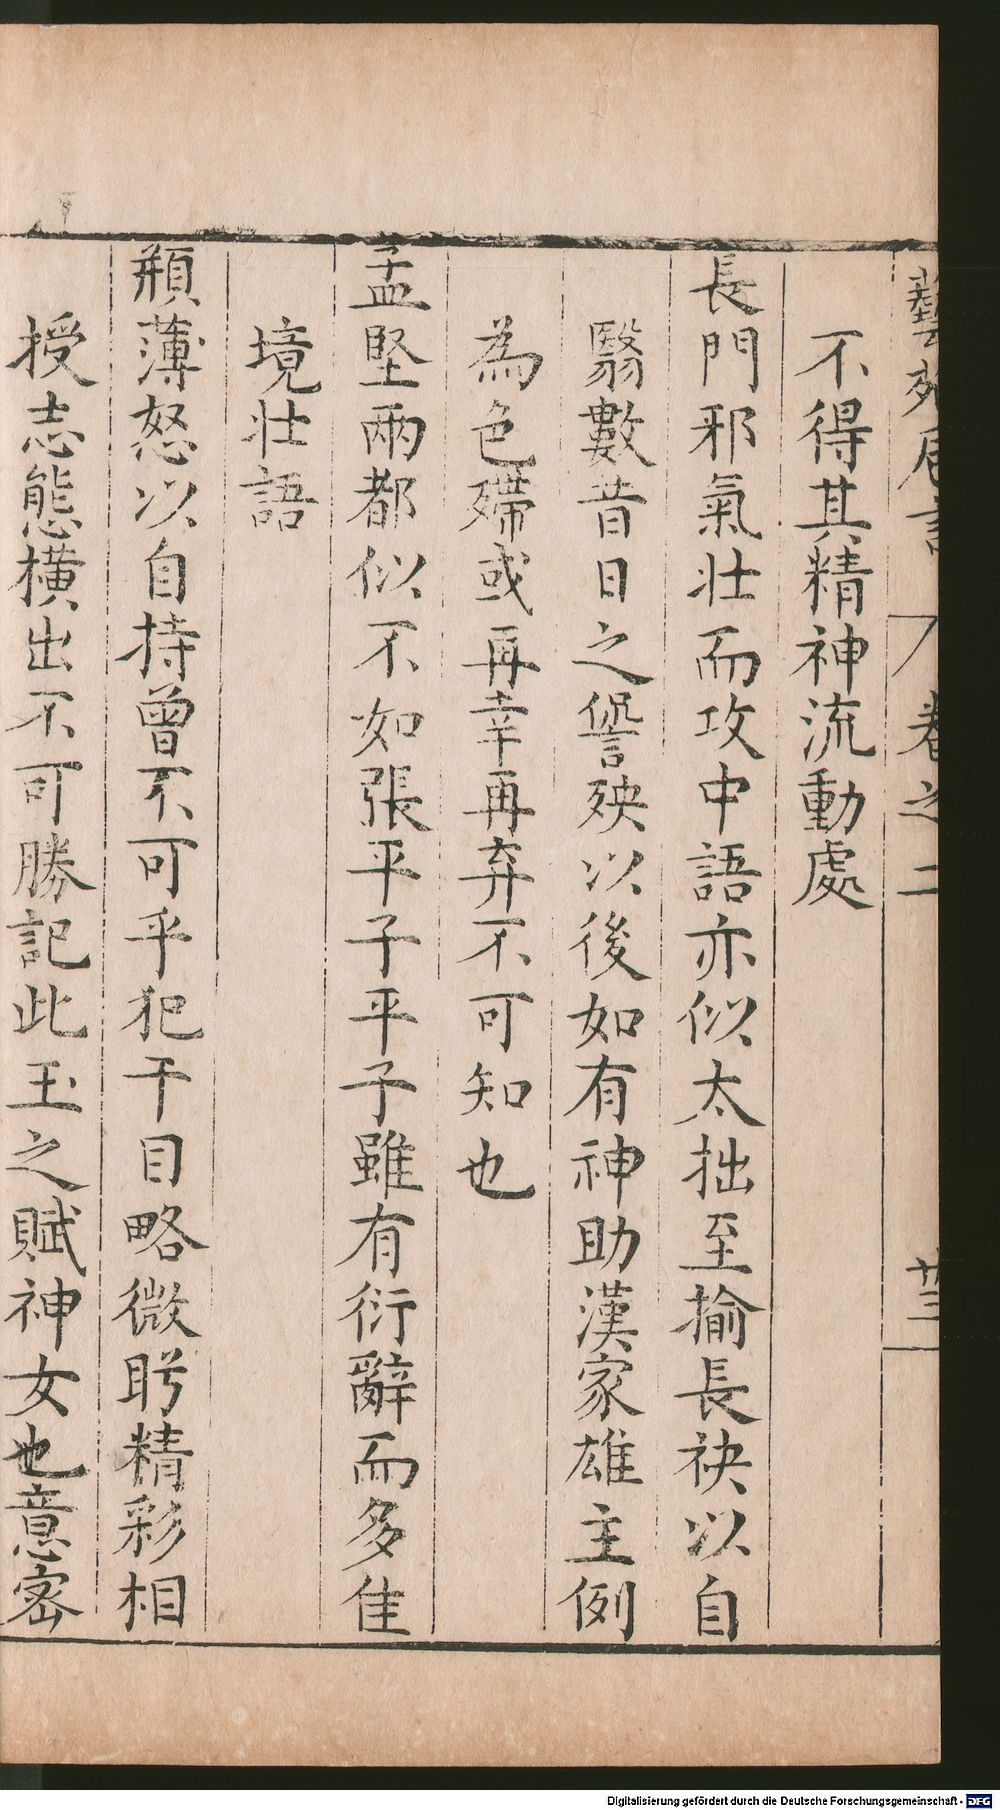 藝苑卮言 卷之二 廿三
不得其精神流動處
長門邪氣壯而攻中語亦似太拙至揄長袂以自
翳數昔日之諐殃以後如有神助漢家雄主例
為色殢或再幸再弃不可知也
孟堅兩都似不如張平子平子雖有衍辭而多佳
境壯語
頩薄怒以自持曾不可乎犯干目略微眄精彩相
授志態橫出不可勝記此玉之賦神女也意密
Digitalisierung gefördert durch die Deutsche Forschungsgemeinschaft - DFG